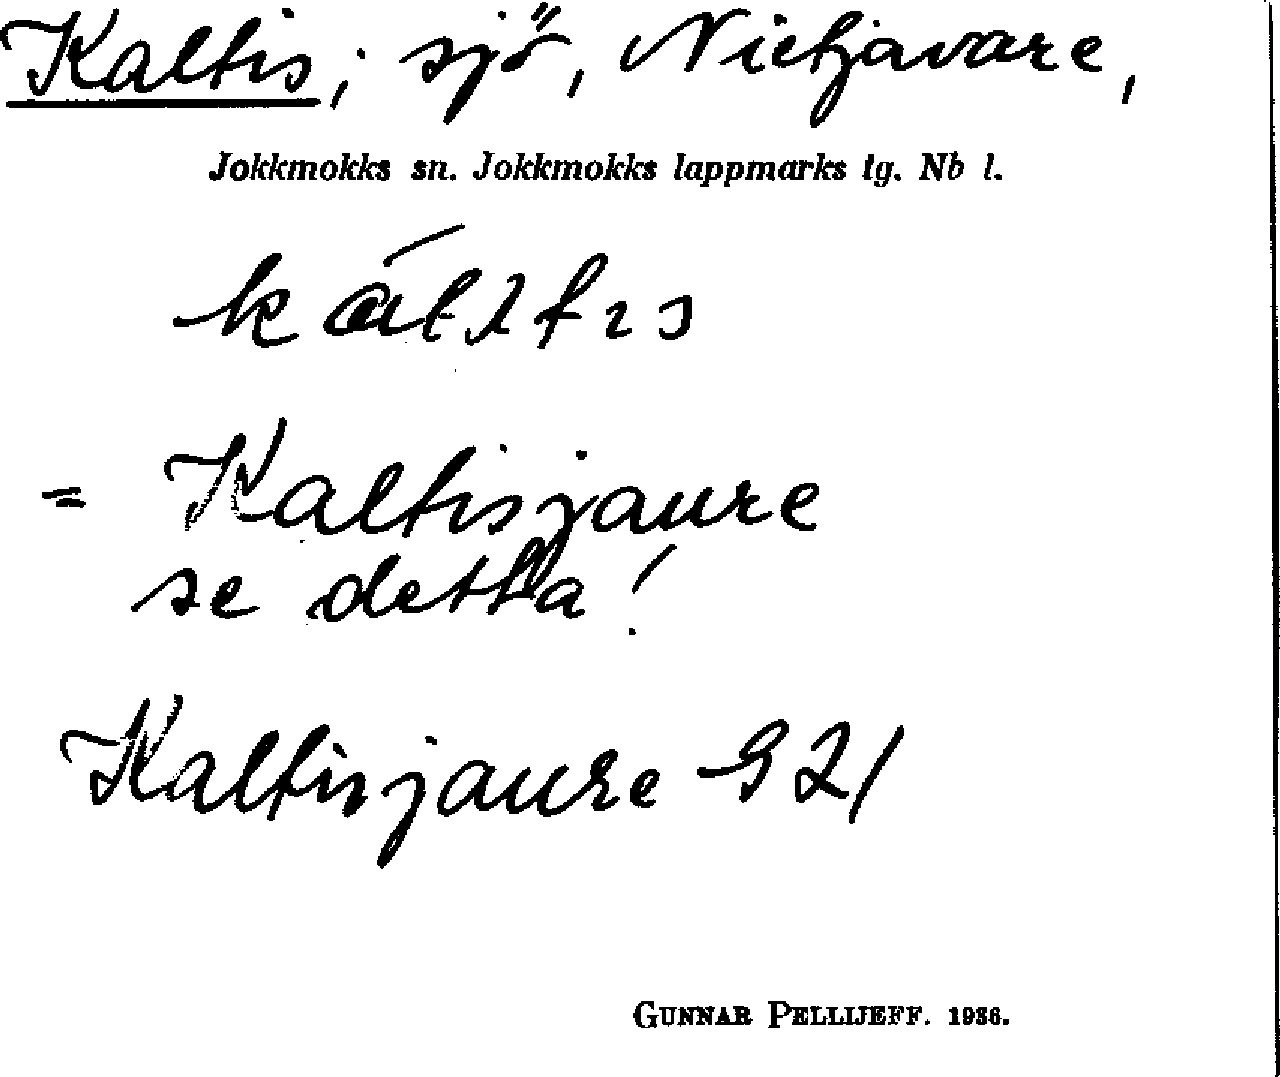 Kaltis, sjö, Nietjavare,
Jokkmokks sn. Jokkmokks lappmarks tg. Nb l.
= Kaltisjaure
se detta!
Kaltisjaure G 21
GUNNAR PELLIJEFF. 1936.